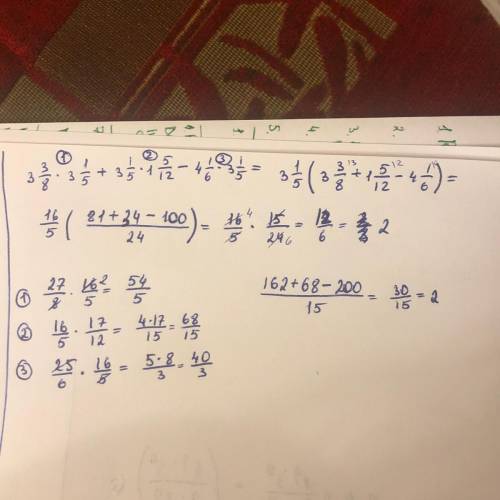 3 3/8 · 3 1/5 + 3 1/5 · 1 5/12 − 4 1/6 · 3 1/5 = 3 1/5 ( 3 3/8 + 1 5/12 − 4 1/6 ) =
16/5 ( (81+34−100)/24 ) = 16/5 · 15/24 = 12/6 = 2
① 27/8 · 16/5 = 54/5
② 16/5 · 17/12 = 4·17/15 = 68/15
③ 25/6 · 16/5 = 5·8/3 = 40/3
(162+68−200)/15 = 30/15 = 2